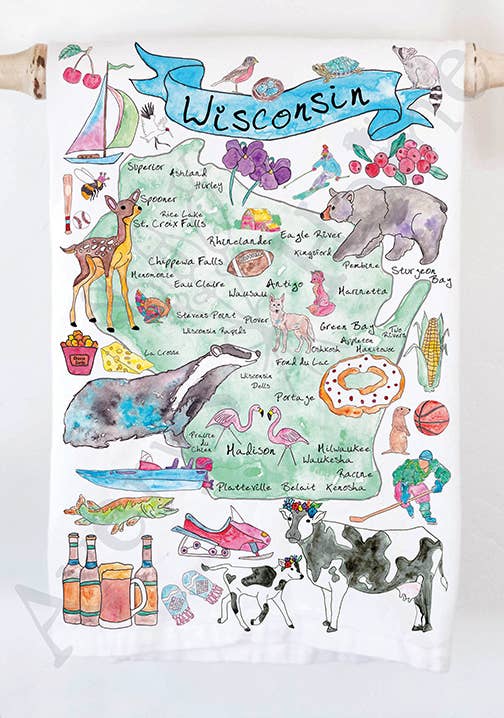 Wisconsin
Superior
Ashland
Hurley
Spooner
Rice Lake
St. Croix Falls
Rhinelander
Eagle River
Kingsford
Chippewa Falls
Pembine
Sturgeon
Bay
Menomonie
Eau Claire
Wausau
Antigo
Marinette
Stevens Point
Plover
Wisconsin Rapids
Green Bay
Two
Rivers
Appleton
Oshkosh
Manitowoc
La Crosse
Fond du Lac
Wisconsin
Dells
Portage
Prairie
du
Chien
Madison
Milwaukee
Waukesha
Racine
Platteville
Beloit
Kenosha